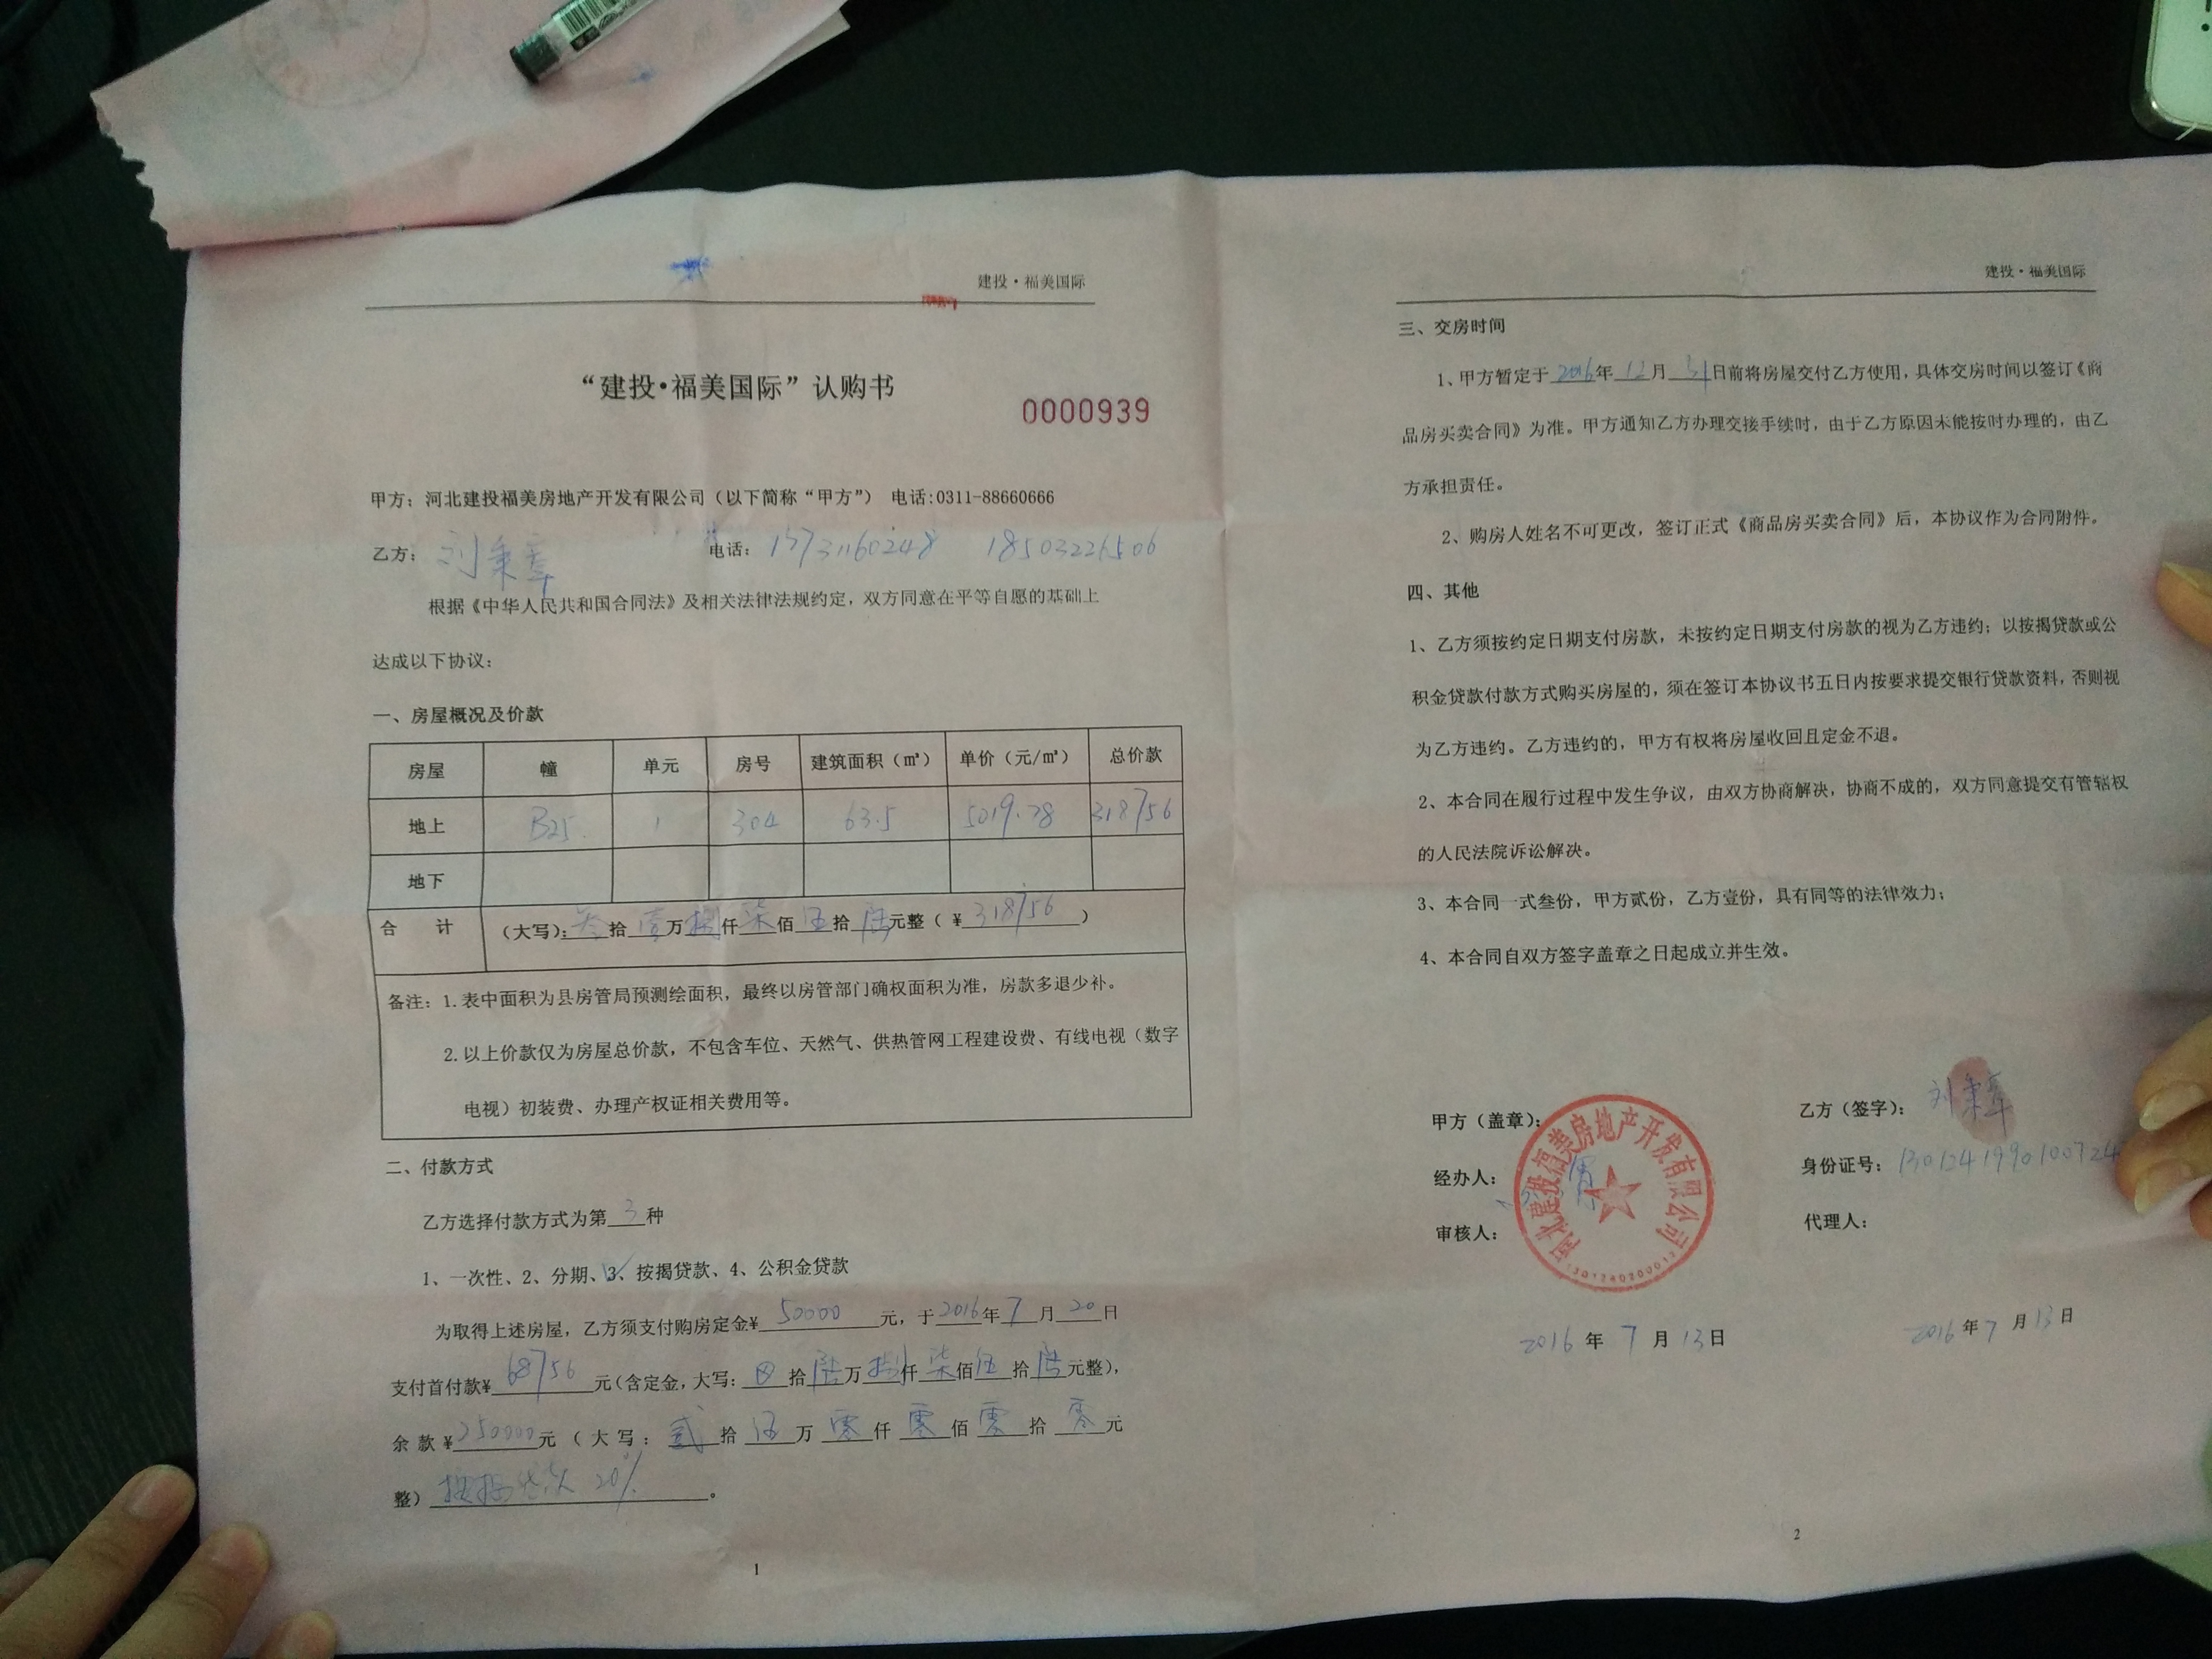 建投·福美国际
“建投·福美国际”认购书
0000939
甲方：河北建投福美房地产开发有限公司（以下简称“甲方”） 电话:0311-88660666
乙方： 刘秉章 电话： 15731160248 18503226506
根据《中华人民共和国合同法》及相关法律法规约定，双方同意在平等自愿的基础上
达成以下协议：
一、房屋概况及价款
房屋 幢 单元 房号 建筑面积（㎡） 单价（元/㎡） 总价款
地上 B25 1 304 63.5 5019.78 318756
地下
合 计 （大写）：叁拾壹万捌仟柒佰伍拾陆元整（￥318756）
备注：1.表中面积为县房管局预测绘面积，最终以房管部门确权面积为准，房款多退少补。
2.以上价款仅为房屋总价款，不包含车位、天然气、供热管网工程建设费、有线电视（数字
电视）初装费、办理产权证相关费用等。
二、付款方式
乙方选择付款方式为第3种
1、一次性、2、分期、3、按揭贷款、4、公积金贷款
为取得上述房屋，乙方须支付购房定金￥50000元，于2016年7月20日
支付首付款￥68756元(含定金,大写：拾陆万捌仟柒佰伍拾陆元整)，
余款￥250000元（大写：贰拾伍万零仟零佰零拾零元
整）按揭贷款 20%。
1
建投·福美国际
三、交房时间
1、甲方暂定于2016年12月31日前将房屋交付乙方使用，具体交房时间以签订《商
品房买卖合同》为准。甲方通知乙方办理交接手续时，由于乙方原因未能按时办理的，由乙
方承担责任。
2、购房人姓名不可更改，签订正式《商品房买卖合同》后，本协议作为合同附件。
四、其他
1、乙方须按约定日期支付房款，未按约定日期支付房款的视为乙方违约；以按揭贷款或公
积金贷款付款方式购买房屋的，须在签订本协议书五日内按要求提交银行贷款资料，否则视
为乙方违约。乙方违约的，甲方有权将房屋收回且定金不退。
2、本合同在履行过程中发生争议，由双方协商解决，协商不成的，双方同意提交有管辖权
的人民法院诉讼解决。
3、本合同一式叁份，甲方贰份，乙方壹份，具有同等的法律效力；
4、本合同自双方签字盖章之日起成立并生效。
甲方（盖章）： 乙方（签字）： 刘秉章
经办人： 身份证号： 1301241990100724
审核人： 代理人：
河北建投福美房地产开发有限公司
2016年7月13日 2016年7月13日
2